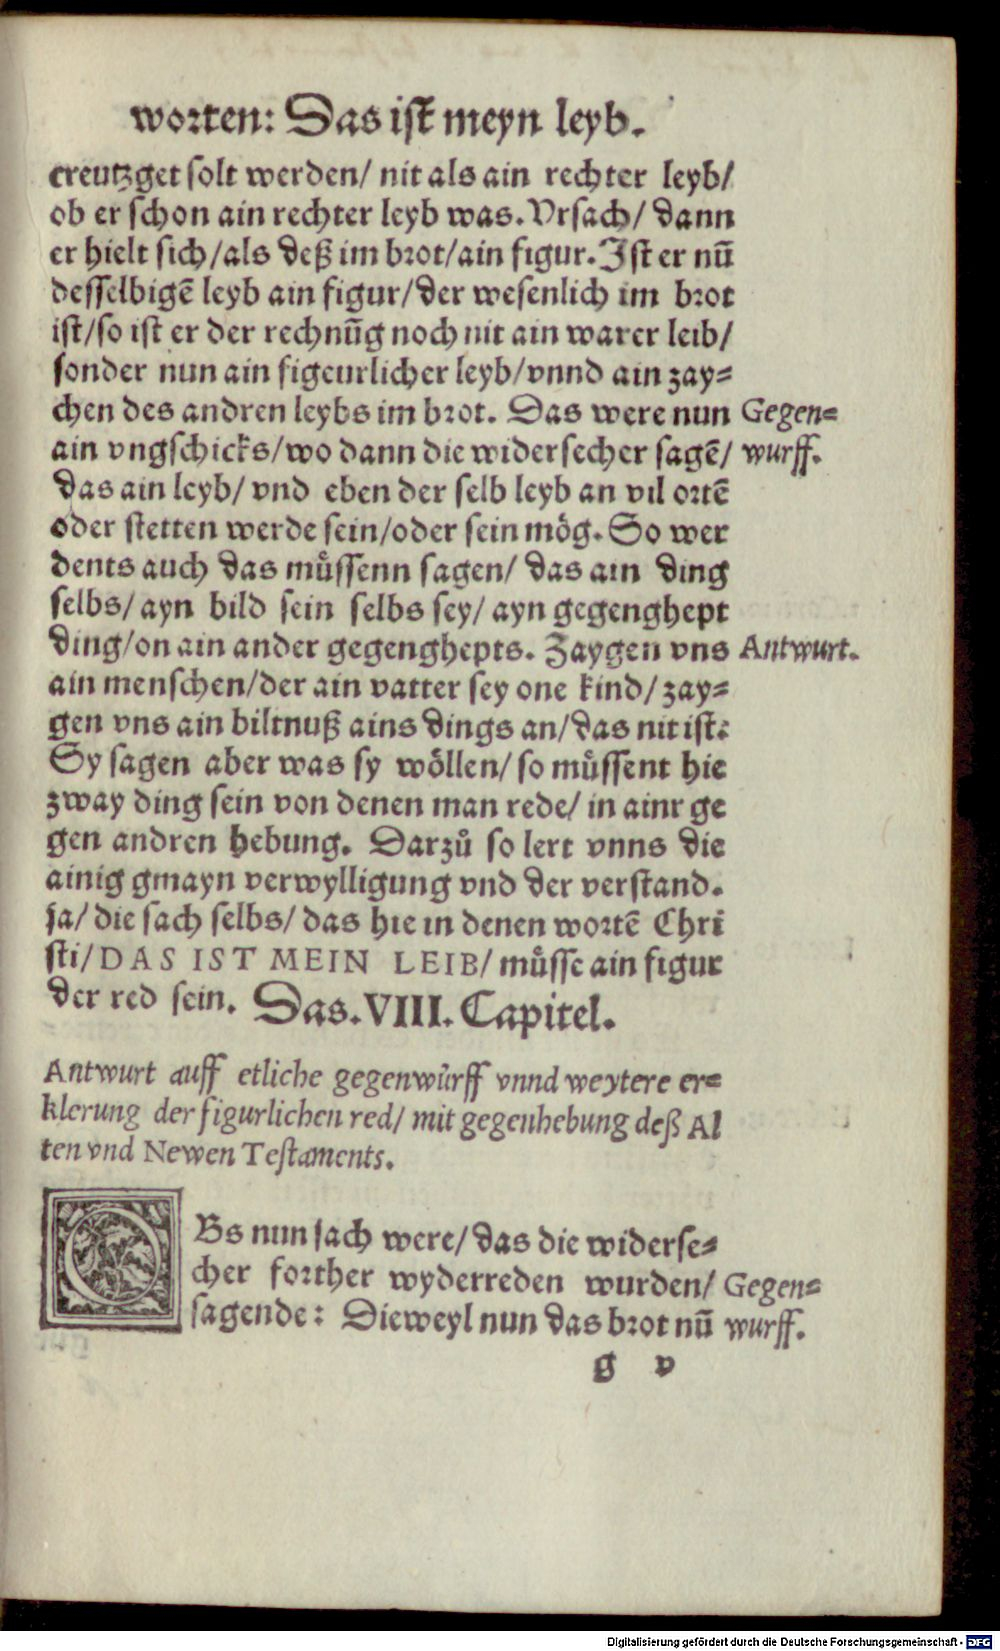 worten: Das ist meyn leyb.
creutzget solt werden/ nit als ain rechter leyb/
ob er schon ain rechter leyb was. Vrsach/ dann
er hielt sich/als deß im brot/ain figur. Ist er nū
desselbigē leyb ain figur/der wesenlich im brot
ist/so ist er der rechnūg noch nit ain warer leib/
sonder nun ain figeurlicher leyb/vnnd ain zay=
chen des andren leybs im brot. Das were nun Gegen=
ain vngschicks/wo dann die widersecher sagē/ wurff.
das ain leyb/ vnd eben der selb leyb an vil ortē
oder stetten werde sein/oder sein mög. So wer
dents auch das müssenn sagen/ das ain ding
selbs/ ayn bild sein selbs sey/ ayn gegenghept
ding/on ain ander gegenghepts. Zaygen vns Antwurt.
ain menschen/der ain vatter sey one kind/ zay=
gen vns ain biltnuß ains dings an/das nit ist:
Sy sagen aber was sy wöllen/ so müssent hie
zway ding sein von denen man rede/ in ainr ge
gen andren hebung. Darzů so lert vnns die
ainig gmayn verwylligung vnd der verstand.
ja/ die sach selbs/ das hie in denen wortē Chri
sti/DAS IST MEIN LEIB/ müsse ain figur
der red sein. Das. VIII. Capitel.
Antwurt auff etliche gegenwürff vnnd weytere er=
klerung der figurlichen red/ mit gegenhebung deß Al
ten vnd Newen Testaments.
OBs nun sach were/ das die widerse=
cher forther wyderreden wurden/ Gegen=
sagende: Dieweyl nun das brot nū wurff.
g v
Digitalisierung gefördert durch die Deutsche Forschungsgemeinschaft - DFG